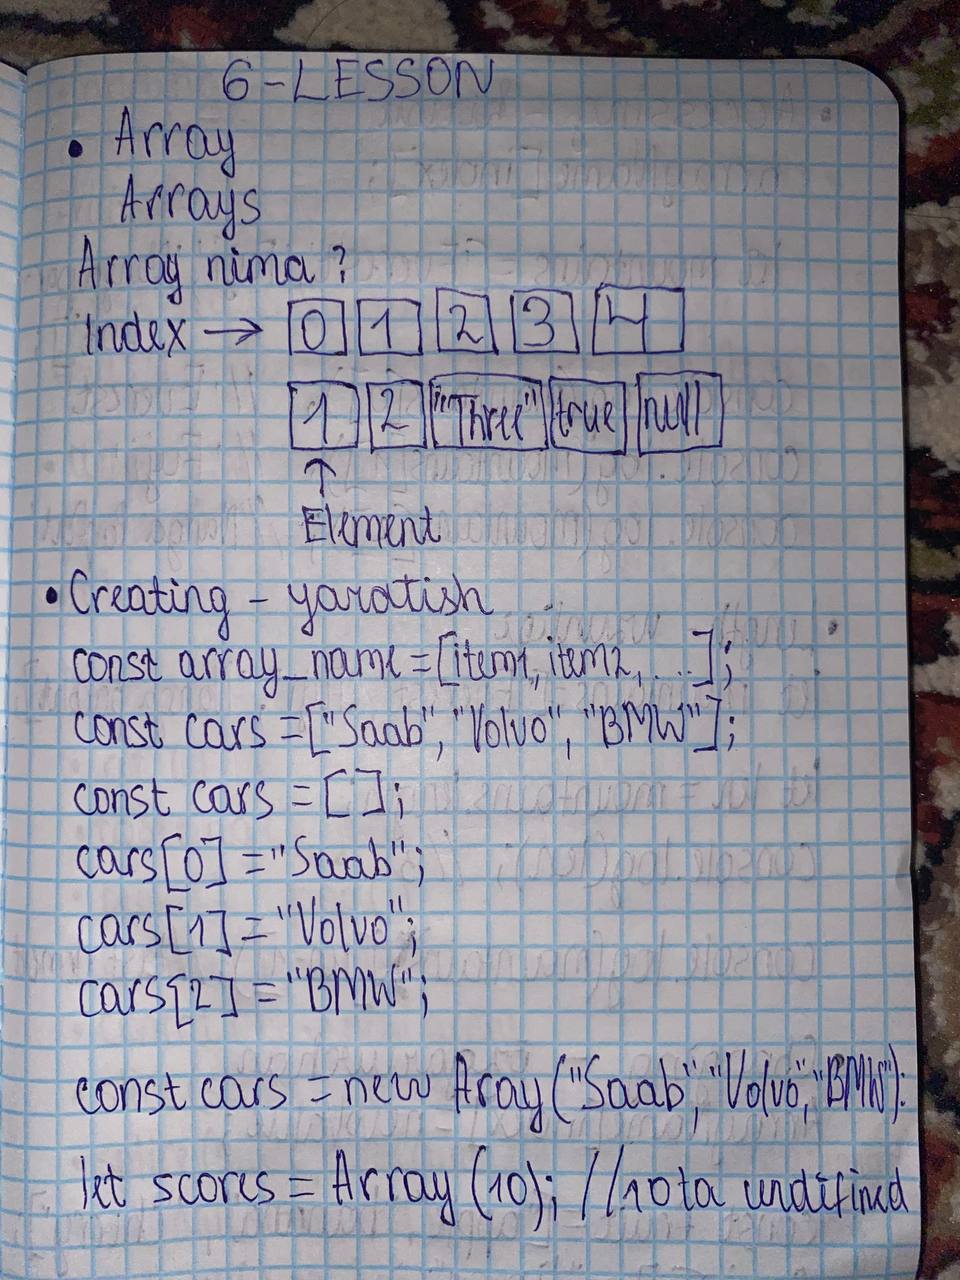 6-LESSON
• Array
Arrays
Array nima?
Index → 0 1 2 3 4
1 2 "Three" true null
↑
Element
• Creating - yaratish
const array_name = [item1, item2, ...];
const cars = ["Saab", "Volvo", "BMW"];
const cars = [ ];
cars[0] = "Saab";
cars[1] = "Volvo";
cars[2] = "BMW";
const cars = new Aray("Saab", "Volvo", "BMW"):
let scores = Array (10); //10ta undifined